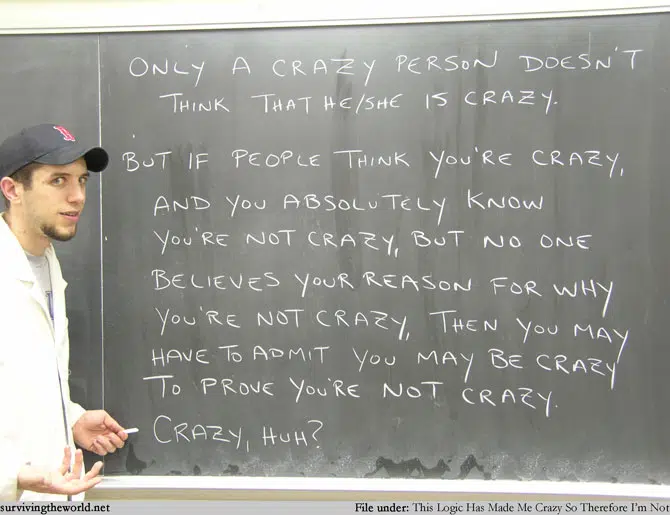 ONLY A CRAZY PERSON DOESN'T
THINK THAT HE/SHE IS CRAZY.
BUT IF PEOPLE THINK YOU'RE CRAZY,
AND YOU ABSOLUTELY KNOW
YOU'RE NOT CRAZY, BUT NO ONE
BELIEVES YOUR REASON FOR WHY
YOU'RE NOT CRAZY, THEN YOU MAY
HAVE TO ADMIT YOU MAY BE CRAZY
TO PROVE YOU'RE NOT CRAZY.
CRAZY, HUH?
survivingtheworld.net
File under: This Logic Has Made Me Crazy So Therefore I'm Not